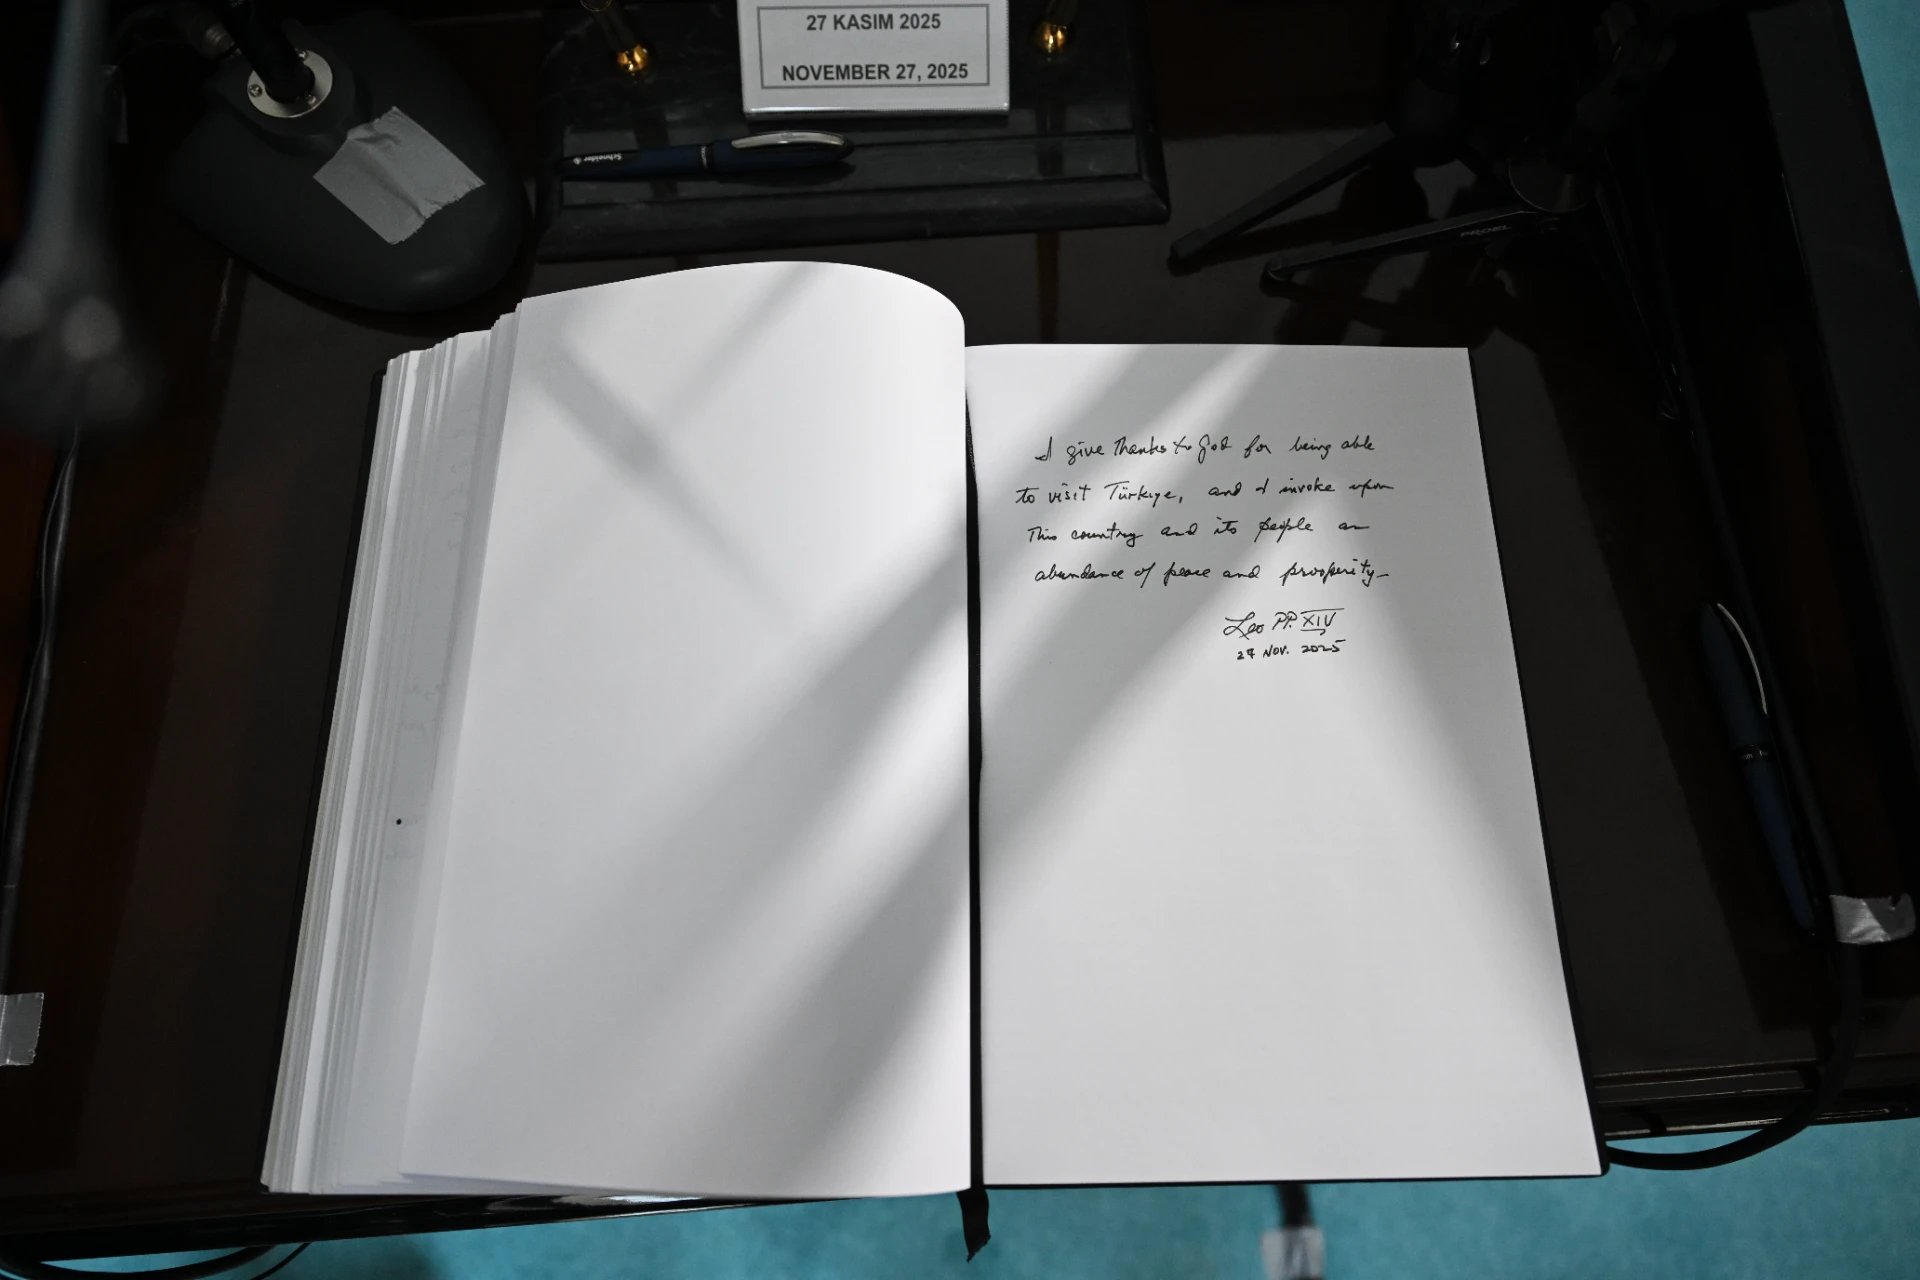 27 KASIM 2025
NOVEMBER 27, 2025
Schneider
PROEL
I give thanks to God for being able
to visit Türkiye, and I invoke upon
this country and its people an
abundance of peace and prosperity_
Leo PP. XIV
27 NOV. 2025